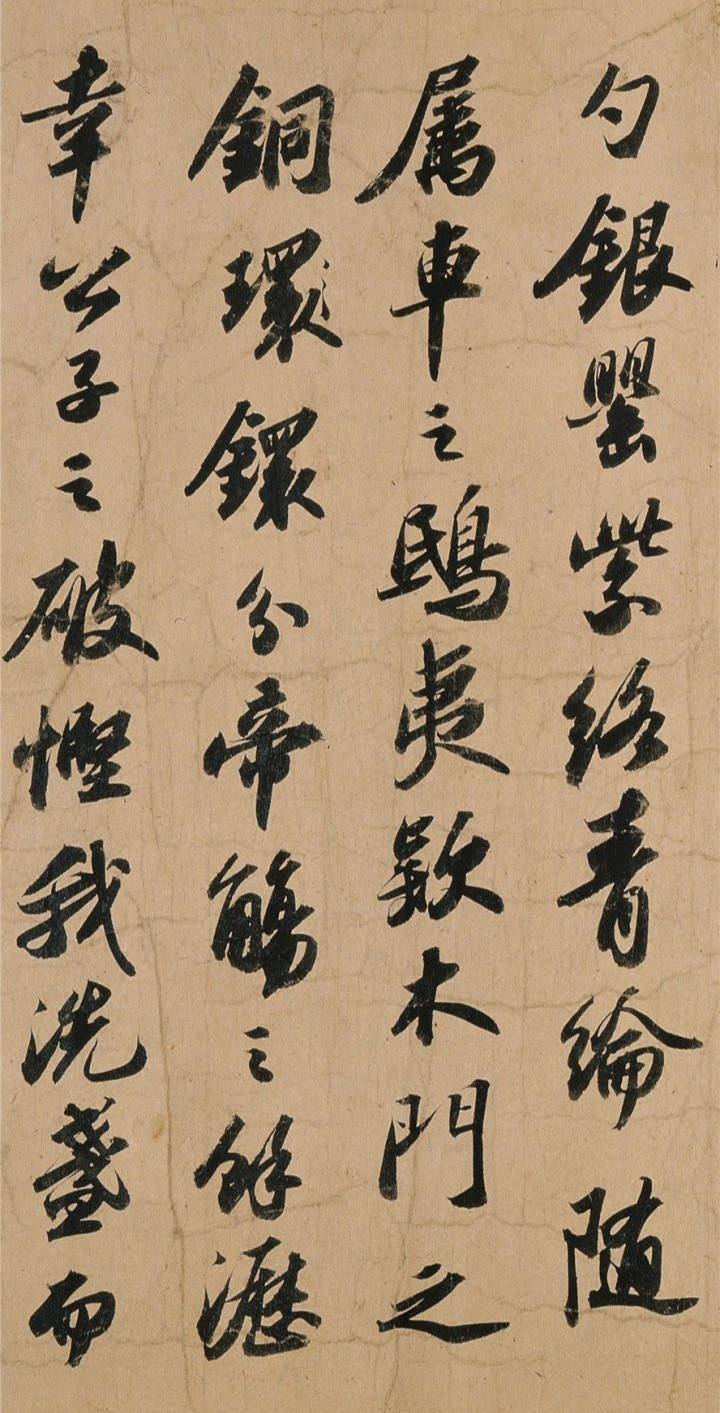 勺銀罌紫絡青綸隨
属車之鴟夷款木門之
銅環鐶分帝觴之餘瀝
幸公子之破慳我洗盞而